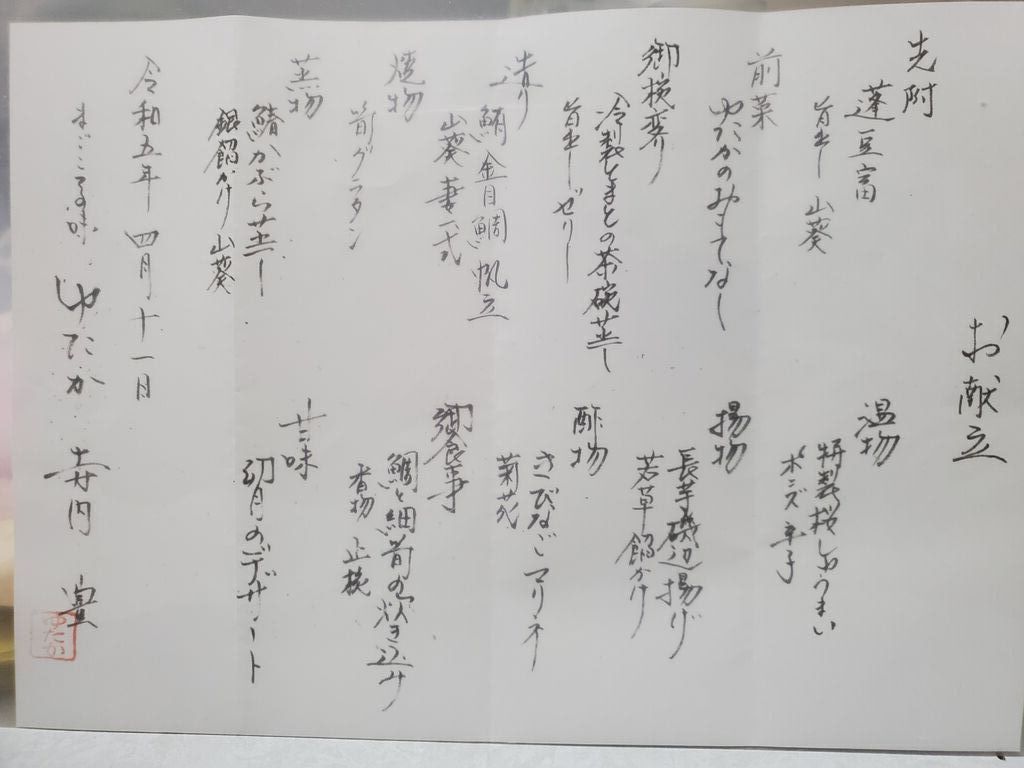 お献立
先附
蓬豆富
旨出し 山葵
前菜
ゆたかのおもてなし
御椀変り
冷製とまとの茶碗蒸し
旨出しゼリー
造り
鮪 金目鯛 帆立
山葵 妻一式
焼物
筍グラタン
蒸物
鰆かぶら蒸し
銀餡かけ 山葵
温物
特製桜しゅうまい
ポンズ 辛子
揚物
長芋磯辺揚げ
若草餡かけ
酢物
きびなごマリネ
菊花
御食事
鯛と細筍の炊き込み
香物 止椀
甘味
卯月のデザート
令和五年 四月十一月
まごころの味
ゆたか 寺内 豊
ゆたか